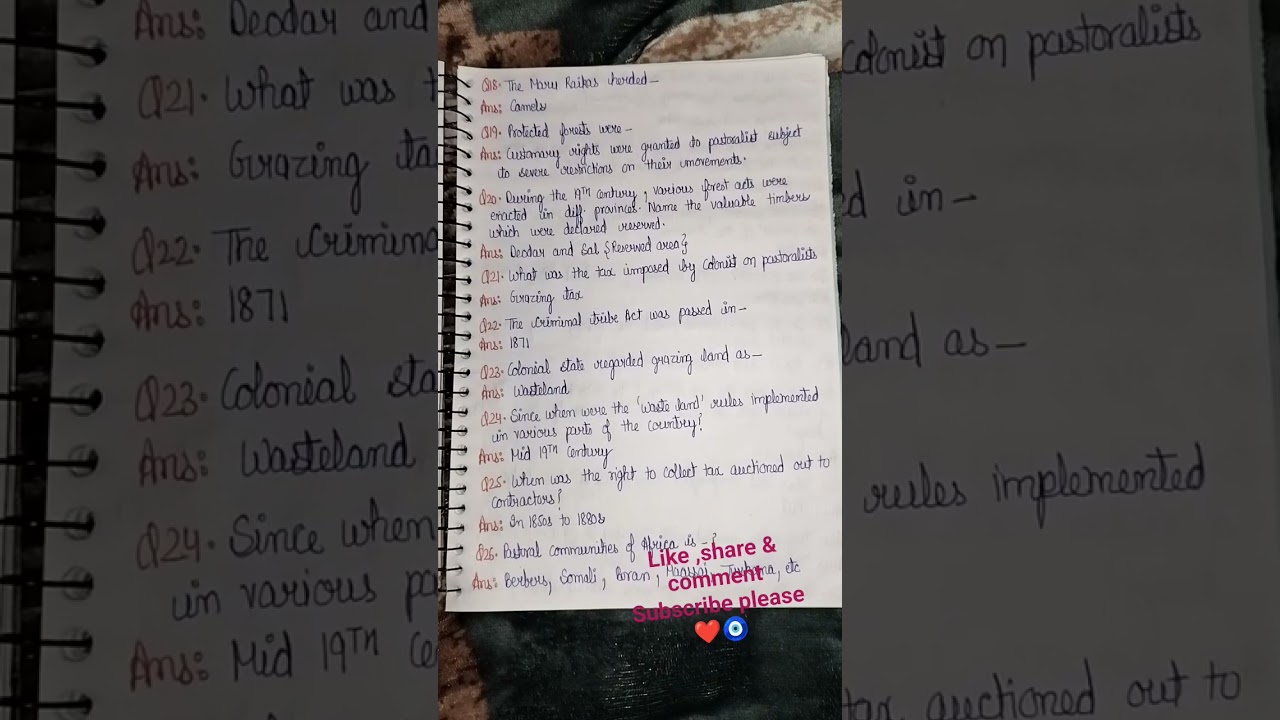 Q18. The Maru Raikas herded –
Ans: Camels
Q19. Protected forests were –
Ans: Customary rights were granted to pastoralist subject
to severe restrictions on their movements.
Q20. During the 19TH century, various forest acts were
enacted in diff. provinces. Name the valuable timbers
which were declared reserved.
Ans: Deodar and Sal {Reserved area}
Q21. What was the tax imposed by Colonist on pastoralists
Ans: Grazing tax
Q22. The Criminal tribe Act was passed in –
Ans: 1871
Q23. Colonial state regarded grazing land as –
Ans: Wasteland
Q24. Since when were the 'waste land' rules implemented
in various parts of the country?
Ans: Mid 19TH Century
Q25. When was the right to collect tax auctioned out to
contractors?
Ans: In 1850s to 1880s
Q26. Pastoral communities of Africa is – ?
Ans: Berbers, Somali, Boran, Maassai, Turkana, etc
Like ,share &
comment
Subscribe please
❤️🧿